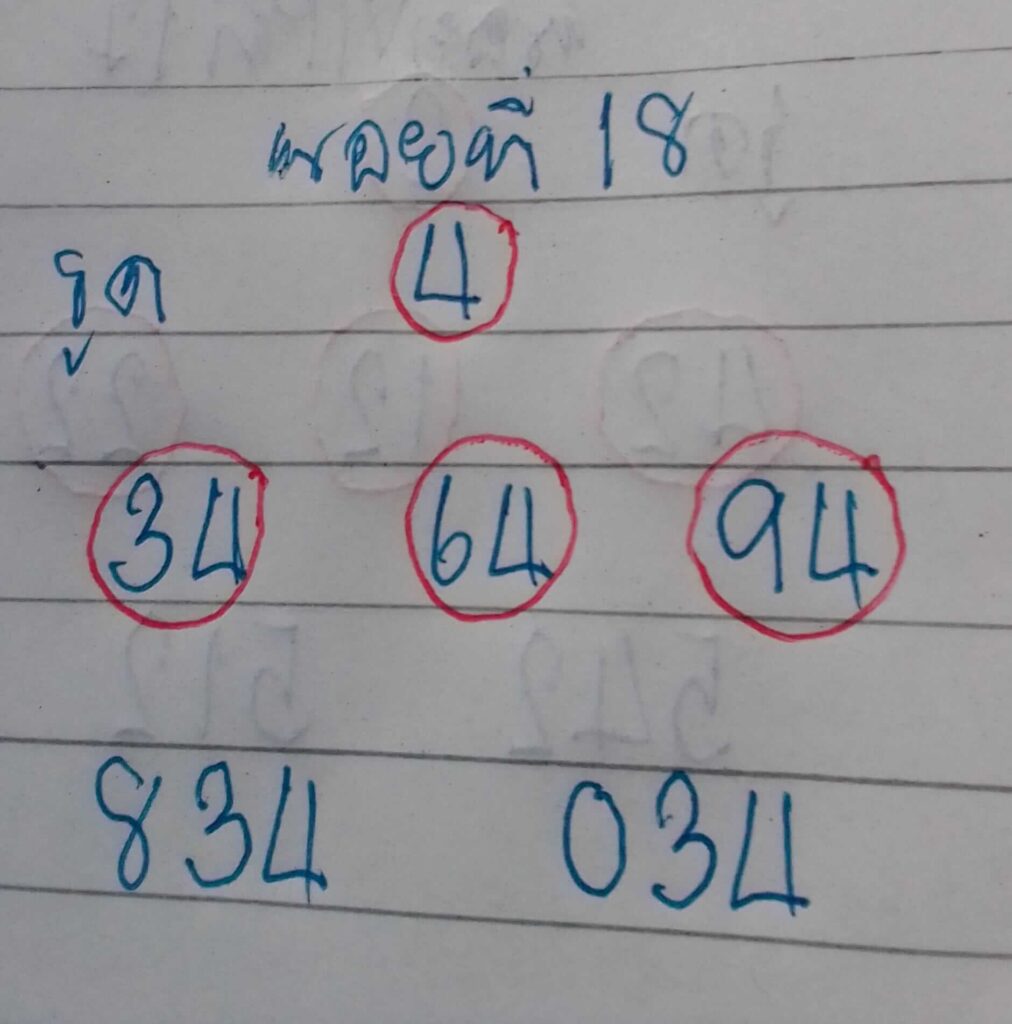 หอยที่ 18
รูด 4
34 64 94
834 034